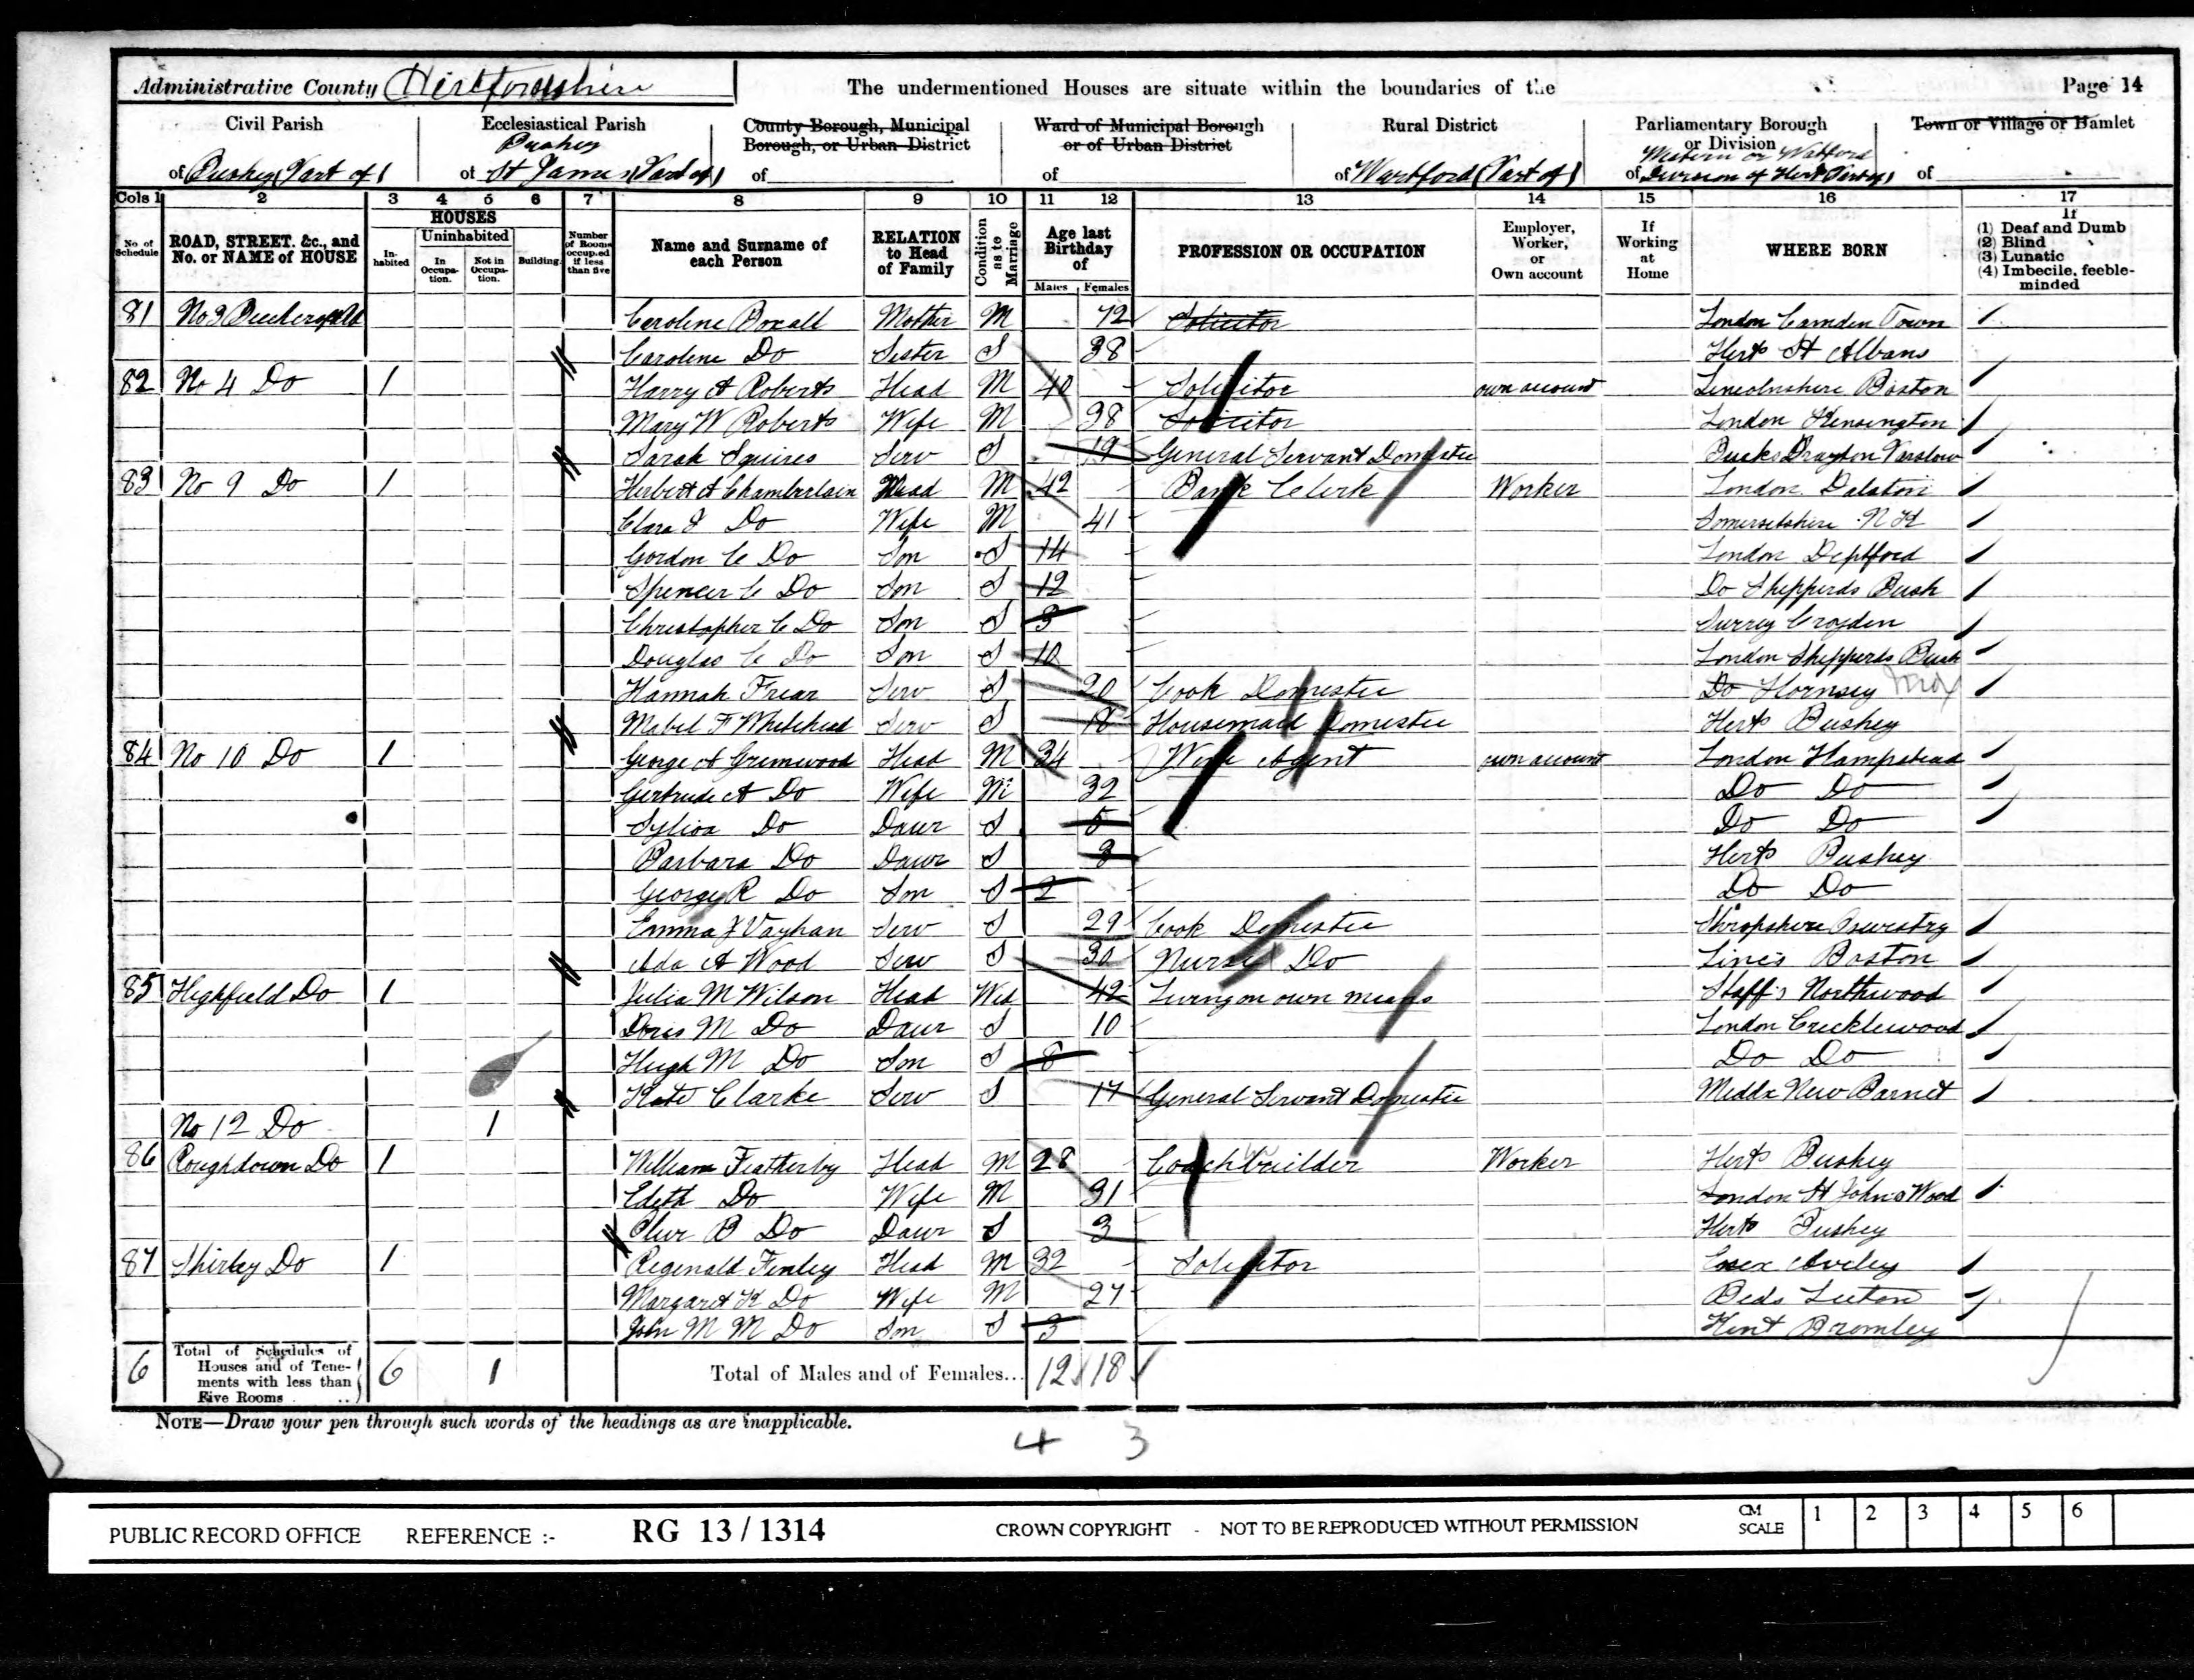 Administrative County Hertfordshire
The undermentioned Houses are situate within the boundaries of the
Page 14
Civil Parish of Bushey (Part of)
Ecclesiastical Parish of Bushey St James (Part of)
County Borough, Municipal Borough, or Urban District of
Ward of Municipal Borough or of Urban District of
Rural District of Watford (Part of)
Parliamentary Borough or Division of Western or Watford Division of Herts (Part of)
Town or Village or Hamlet of
Cols 1 2 3 4 5 6 7 8 9 10 11 12 13 14 15 16 17
No of Schedule
ROAD, STREET, &c., and No. or NAME of HOUSE
HOUSES
Inhabited
Uninhabited
In Occupation.
Not in Occupation.
Building.
Number of Rooms occupied if less than five
Name and Surname of each Person
RELATION to Head of Family
Condition as to Marriage
Age last Birthday of
Males Females
PROFESSION OR OCCUPATION
Employer, Worker, or Own account
If Working at Home
WHERE BORN
If (1) Deaf and Dumb (2) Blind (3) Lunatic (4) Imbecile, feeble-minded
81 No 3 Caroline Boxall Mother M 72 Solicitor London Camden Town
Caroline Do Sister S 38 Herts St Albans
82 No 4 Do 1 Harry A Roberts Head M 40 Solicitor own account Lincolnshire Boston
Mary W Roberts Wife M 38 Solicitor London Kensington
Sarah Squires Serv S 19 General Servant Domestic Bucks Drayton Parslow
83 No 9 Do 1 Herbert A Chamberlain Head M 42 Bank Clerk Worker London Dalston
Clara J Do Wife M 41 Somersetshire N K
Gordon C Do Son S 14 London Deptford
Spencer C Do Son S 12 Do Shepperds Bush
Christopher C Do Son S 3 Surrey Croyden
Douglas C Do Son S 10 London Shepperds Bush
Hannah Friar Serv S 20 Cook Domestic Do Hornsey Mdx
Mabel F Whitehead Serv S 18 Housemaid Domestic Herts Bushey
84 No 10 Do 1 George A Grimwood Head M 34 Wine Agent own account London Hampstead
Gertrude A Do Wife M 32 Do Do
Sylvia Do Daur S 5 Do Do
Barbara Do Daur S 3 Herts Bushey
George R Do Son S 2 Do Do
Emma J Vaughan Serv S 29 Cook Domestic Shropshire Oswestry
Ada A Wood Serv S 30 Nurse Do Lincs Boston
85 Highfield Do 1 Julia M Wilson Head Wid 42 Living on own means Staffs Northwood
Doris M Do Daur S 10 London Cricklewood
Hugh M Do Son S 8 Do Do
Kate Clarke Serv S 17 General Servant Domestic Middx New Barnet
No 12 Do 1
86 Roughdown Do 1 William Featherby Head M 28 Coachbuilder Worker Herts Bushey
Edith Do Wife M 31 London St Johns Wood
Olive B Do Daur S 3 Herts Bushey
87 Shirley Do 1 Reginald Finley Head M 32 Solicitor Essex Aveley
Margaret K Do Wife M 27 Beds Luton
John M M Do Son S 3 Kent Bromley
6 Total of Schedules of Houses and of Tenements with less than Five Rooms 6 1 Total of Males and of Females... 12 18
NOTE—Draw your pen through such words of the headings as are inapplicable.
4 3
PUBLIC RECORD OFFICE REFERENCE :- RG 13 / 1314 CROWN COPYRIGHT - NOT TO BE REPRODUCED WITHOUT PERMISSION CM SCALE 1 2 3 4 5 6